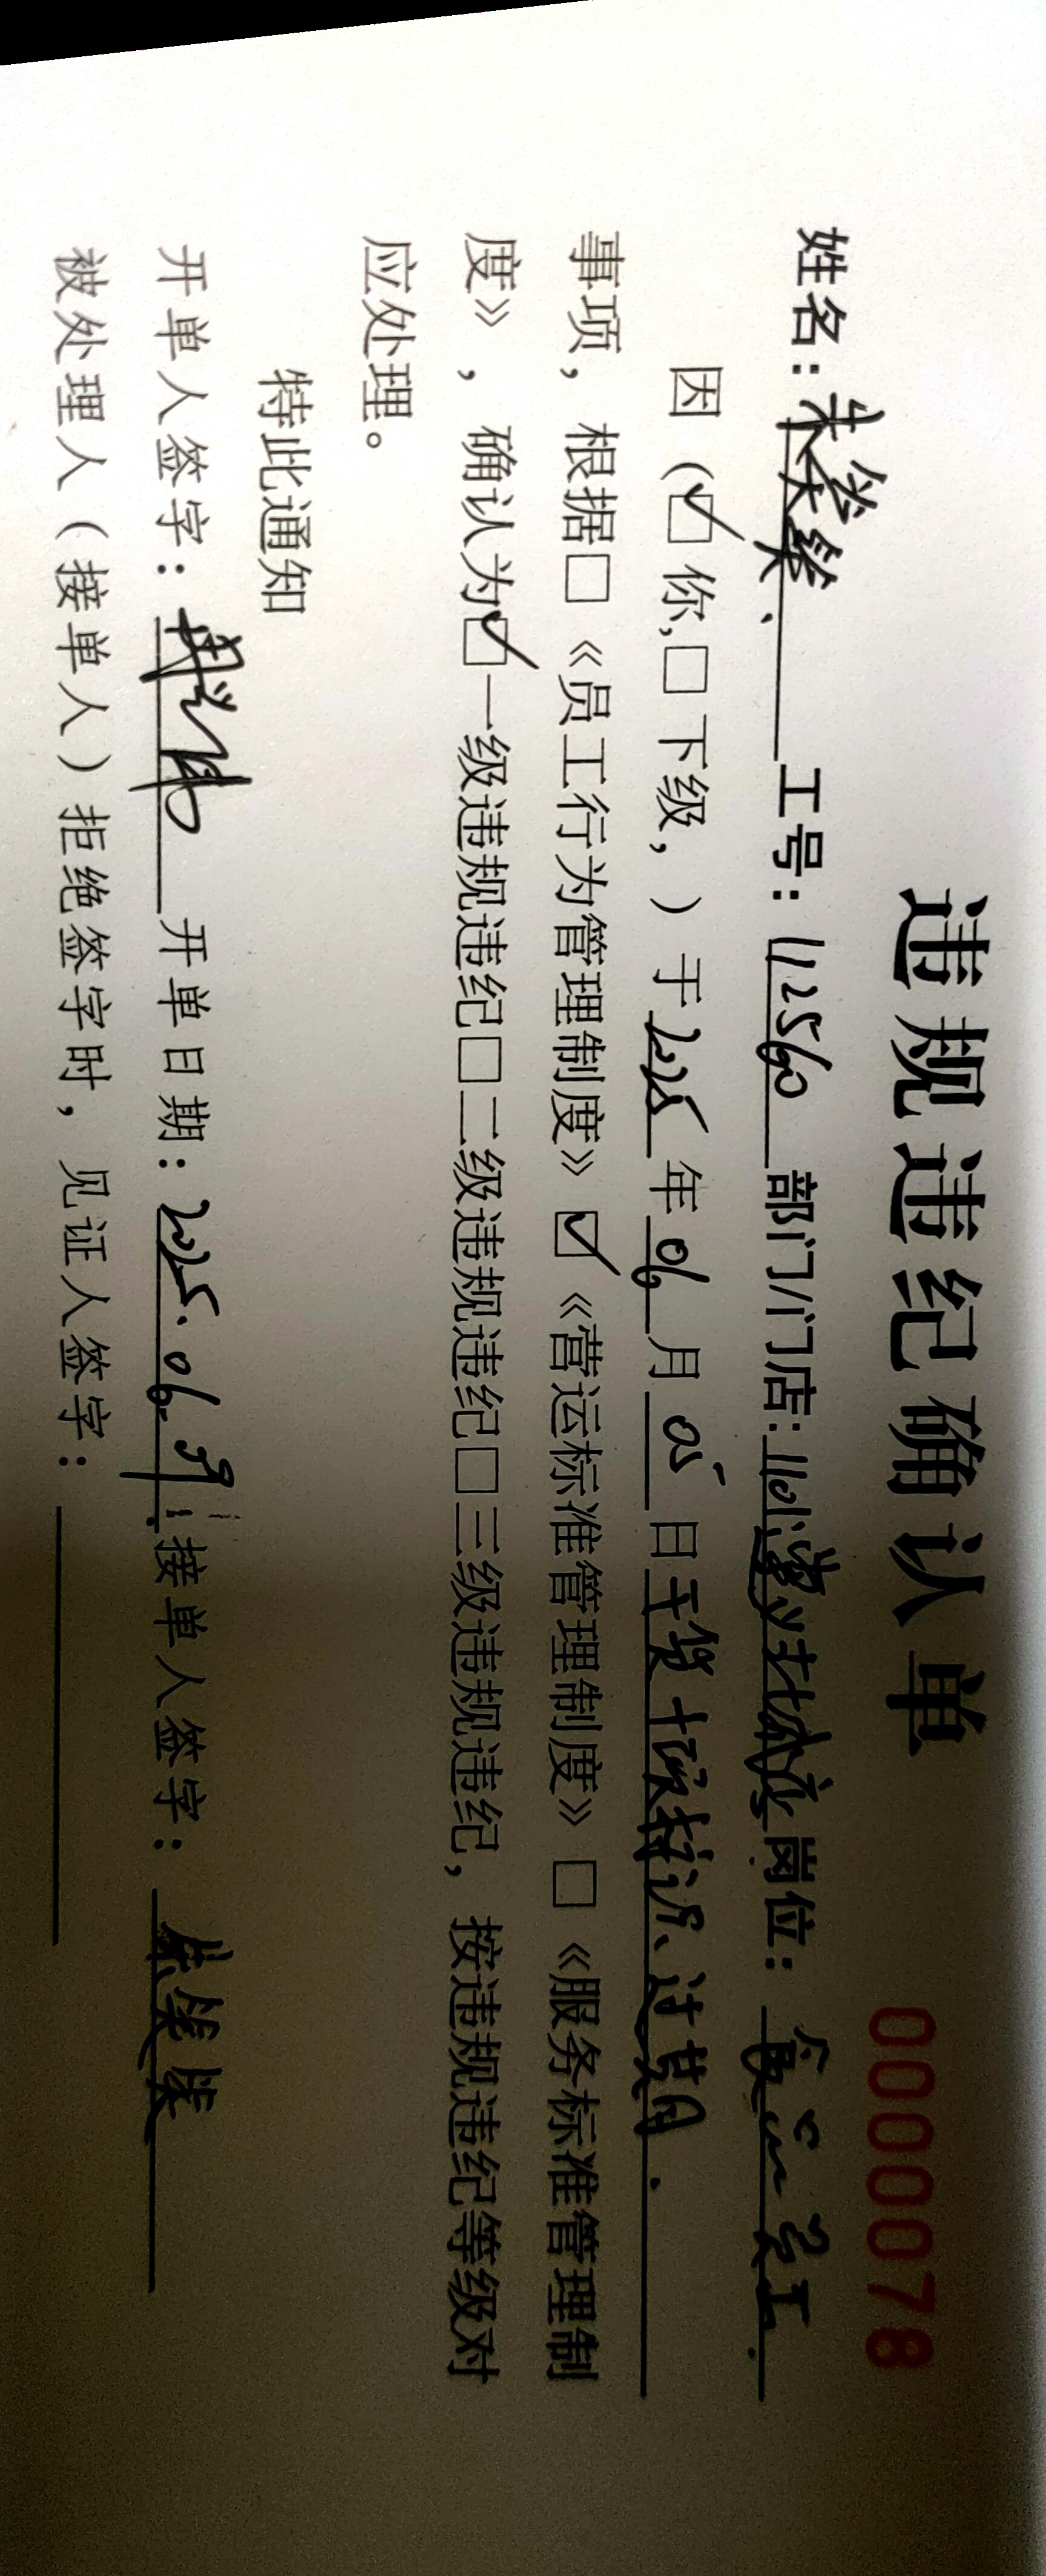 违规违纪确认单
0000078
姓名： 工号：112560 部门/门店： 岗位： 员工
因（☑你,□下级，）于2025年06月05日干货 过期.
事项，根据□《员工行为管理制度》☑《营运标准管理制度》□《服务标准管理制
度》，确认为☑一级违规违纪□二级违规违纪□三级违规违纪，按违规违纪等级对
应处理。
特此通知
开单人签字： 开单日期：2025.06. 接单人签字：
被处理人（接单人）拒绝签字时，见证人签字：